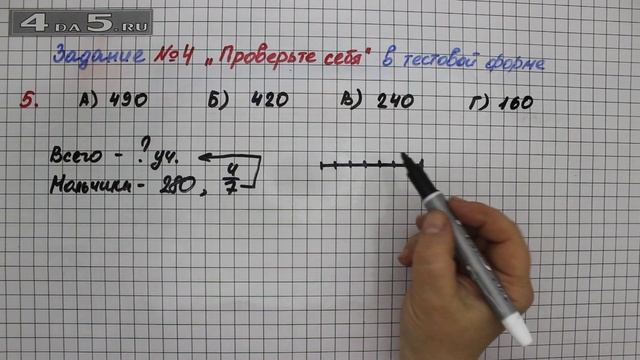 4 DA 5.RU
Задание №4 „Проверьте себя" в тестовой форме
5. А) 490 Б) 420 В) 240 Г) 160
Всего - ? уч.
Мальчики - 280, 4/7